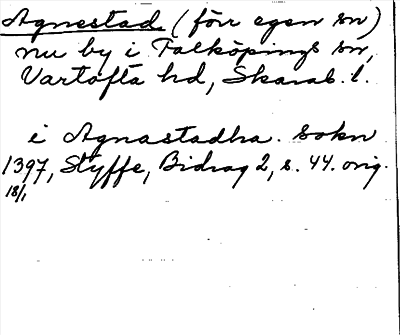 Agnestad (förr egen sn)
nu by i Falköpings sn,
Vartofta hd, Skarab. l.
i Agnastadha. sokn
1397, Styffe, Bidrag 2, s. 44. orig.
18/1